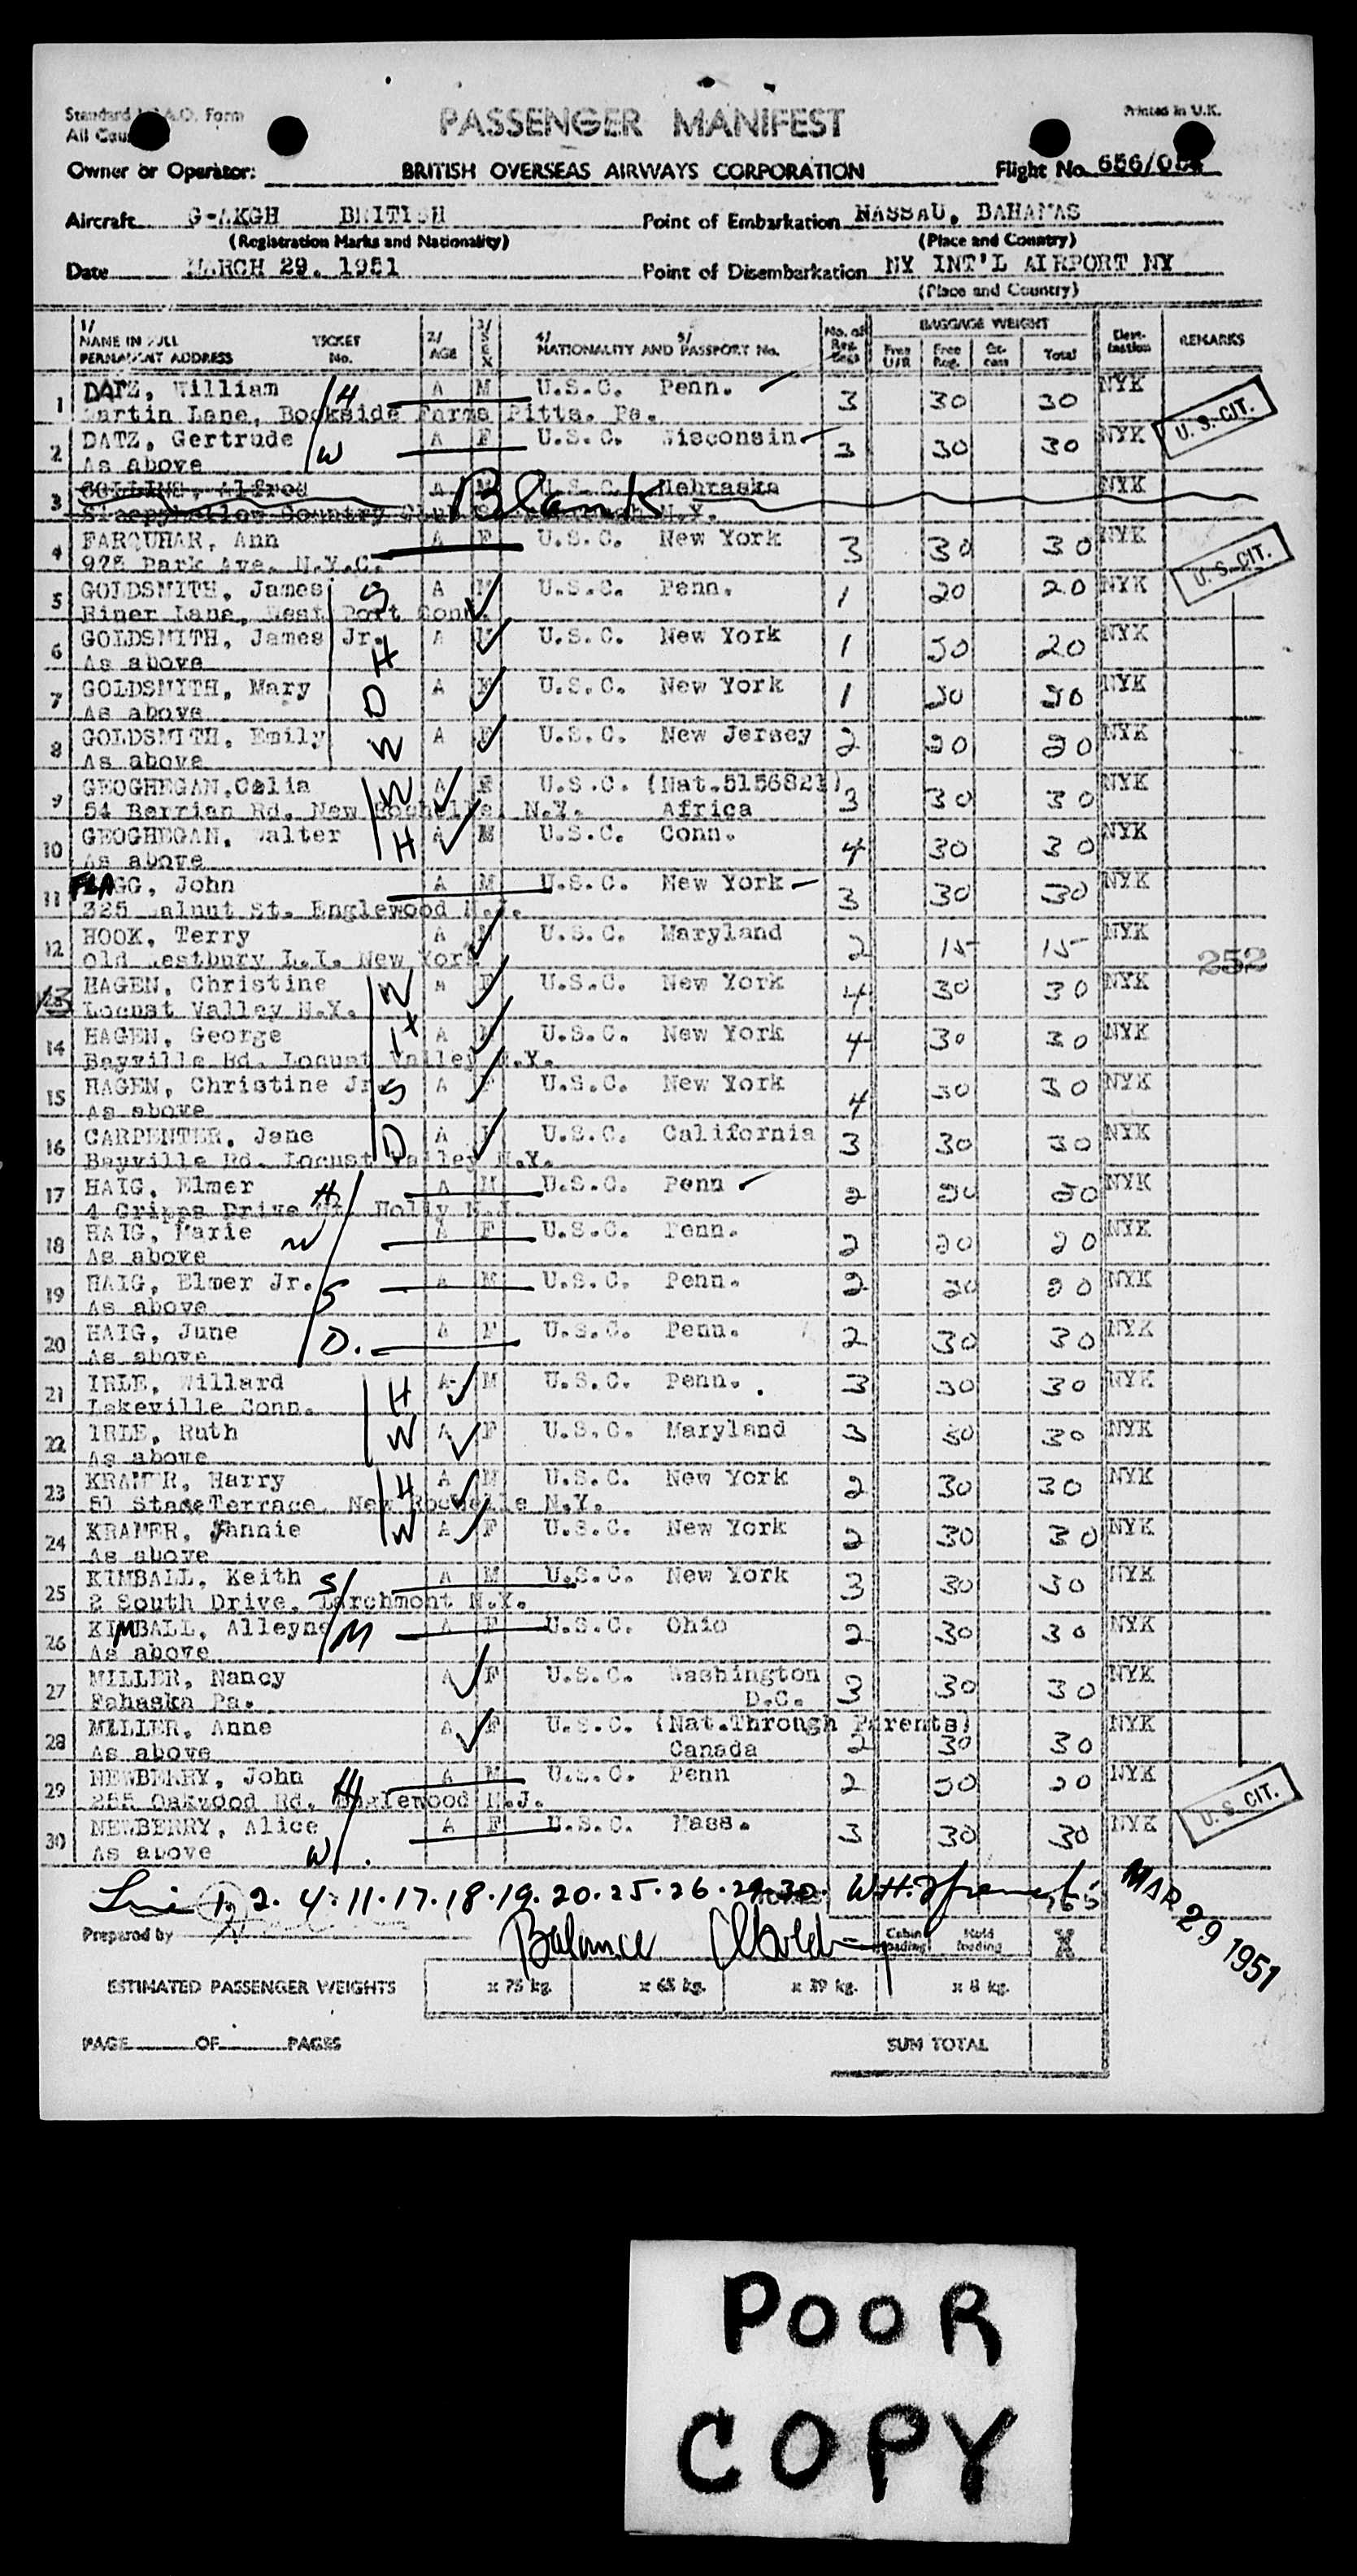 Standard I.C.A.O. Form
PASSENGER MANIFEST
Printed in U.K.
Owner or Operator: BRITISH OVERSEAS AIRWAYS CORPORATION Flight No. 656/
Aircraft G-AKGH BRITISH Point of Embarkation NASSAU, BAHAMAS
(Registration Marks and Nationality) (Place and Country)
Date MARCH 29, 1951 Point of Disembarkation NY INT'L AIRPORT NY
(Place and Country)
1/ NAME IN FULL PERMANENT ADDRESS TICKET No. 2/ AGE 3/ SEX 4/ NATIONALITY AND 5/ PASSPORT No. No. of Reg. Bags BAGGAGE WEIGHT Free U/R Free Reg. Total Destination REMARKS
1 DATZ, William H A M U.S.C. Penn. 3 30 30 NYK
Martin Lane, Bookside Farms Pitts. Pa. U.S. CIT.
2 DATZ, Gertrude W A F U.S.C. Wisconsin 3 30 30 NYK
As above
3 Alfred A M U.S.C. Nebraska NYK
Blank
Country N.Y.
4 FARQUHAR, Ann A F U.S.C. New York 3 30 30 NYK
Park Ave. N.Y.C. U.S. CIT.
5 GOLDSMITH, James S A M U.S.C. Penn. 1 20 20 NYK
Lane, West Port Conn.
6 GOLDSMITH, James Jr. H A M U.S.C. New York 1 20 20 NYK
As above
7 GOLDSMITH, Mary D A F U.S.C. New York 1 20 20 NYK
As above
8 GOLDSMITH, Emily W A F U.S.C. New Jersey 2 20 20 NYK
As above
9 GEOGHEGAN, Celia W A F U.S.C. (Nat.5156821) 3 30 30 NYK
54 Berrian Rd. New Rochelle N.Y. Africa
10 GEOGHEGAN, Walter H A M U.S.C. Conn. 4 30 30 NYK
As above
11 FLAGG, John A M U.S.C. New York 3 30 30 NYK
325 Walnut St. Englewood N.J.
12 HOOK, Terry A M U.S.C. Maryland 2 15 15 NYK
Old Westbury L.I. New York 252
13 HAGEN, Christine W A F U.S.C. New York 4 30 30 NYK
Locust Valley N.Y.
14 HAGEN, George H A M U.S.C. New York 4 30 30 NYK
Bayville Rd. Locust Valley N.Y.
15 HAGEN, Christine Jr. S A F U.S.C. New York 4 30 30 NYK
As above
16 CARPENTER, Jane D A F U.S.C. California 3 30 30 NYK
Bayville Rd. Locust Valley N.Y.
17 HAIG, Elmer H A M U.S.C. Penn 2 20 20 NYK
4 Gripps Drive Mt. Holly N.J.
18 HAIG, Marie W A F U.S.C. Penn. 2 20 20 NYK
As above
19 HAIG, Elmer Jr. S A M U.S.C. Penn. 2 20 20 NYK
As above
20 HAIG, June D. A F U.S.C. Penn. 2 30 30 NYK
As above
21 IRLE, Willard H A M U.S.C. Penn. 3 30 30 NYK
Lakeville Conn.
22 IRLE, Ruth W A F U.S.C. Maryland 3 30 30 NYK
As above
23 KRAMER, Harry H A M U.S.C. New York 2 30 30 NYK
Terrace, New Rochelle N.Y.
24 KRAMER, Fannie W A F U.S.C. New York 2 30 30 NYK
As above
25 KIMBALL, Keith S A M U.S.C. New York 3 30 30 NYK
2 South Drive, Larchmont N.Y.
26 KIMBALL, Alleyne M A F U.S.C. Ohio 2 30 30 NYK
As above
27 MILLER, Nancy A F U.S.C. Washington 3 30 30 NYK
Pa. D.C.
28 MILLER, Anne A F U.S.C. (Nat.Through Parents) 2 30 30 NYK
As above Canada
29 NEWBERRY, John H A M U.S.C. Penn 2 20 20 NYK
255 Oakwood Rd. Englewood N.J. U.S. CIT.
30 NEWBERRY, Alice W A F U.S.C. Mass. 3 30 30 NYK
As above
1. 2. 4. 11. 17. 18. 19. 20. 25. 26. 29. 30. W.H. MAR 29 1951
Prepared by Balance Cabin loading Hold loading
ESTIMATED PASSENGER WEIGHTS x 75 kg. x 65 kg. x 39 kg. x 8 kg.
PAGE OF PAGES SUM TOTAL
POOR
COPY